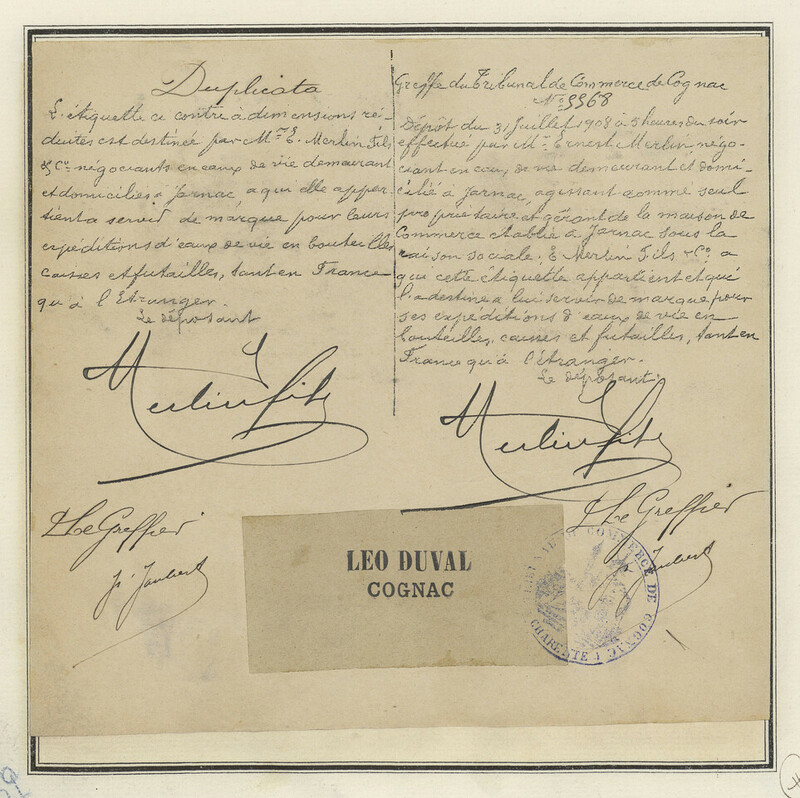 Duplicata
L'étiquette ci contre à dimensions ré-
duites est destinée par Mrs E. Merlin Fils
& Cie négociants en eaux de vie demeurant
et domiciliés à Jarnac, a qui elle appar-
tient a servir de marque pour leurs
expéditions d'eaux de vie en bouteilles
caisses et futailles, tant en France
qu'à l'Etranger.
Le déposant
Merlin fils
Le Greffier
Jaubert
Greffe du Tribunal de Commerce de Cognac
No 5568
Dépôt du 31 Juillet 1908 à 5 heures du soir
effectué par Mr Ernest Merlin négo-
ciant en eaux de vie demeurant et domi-
cilié à Jarnac, agissant comme seul
propriétaire et gérant de la maison de
Commerce etablie à Jarnac sous la
raison sociale: E Merlin Fils & Co a
qui cette étiquette appartient et qui
l'a destine a lui servir de marque pour
ses expéditions d'eaux de vie en
bouteilles, caisses et futailles, tant en
France qu'à l'Etranger.
Le déposant
Merlin fils
Le Greffier
Jaubert
LEO DUVAL
COGNAC
TRIBUNAL DE COMMERCE DE COGNAC
CHARENTE